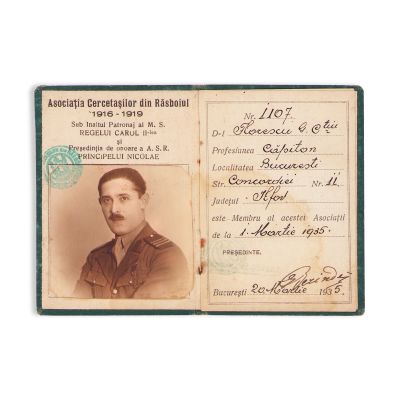 Asociația Cercetașilor din Răsboiul
1916 - 1919
Sub Inaltul Patronaj al M. S.
REGELUI CAROL II-lea
și
Președinția de onoare a A. S. R.
PRINCIPELUI NICOLAE
Nr. 1107.
D-l Florescu G. C-tin
Profesiunea Căpitan
Localitatea București
Str. Concordiei Nr. 11
Județul Ilfov
este Membru al acestei Asociații
de la 1. Martie 1935.
PREȘEDINTE,
București 20 Martie 1935.